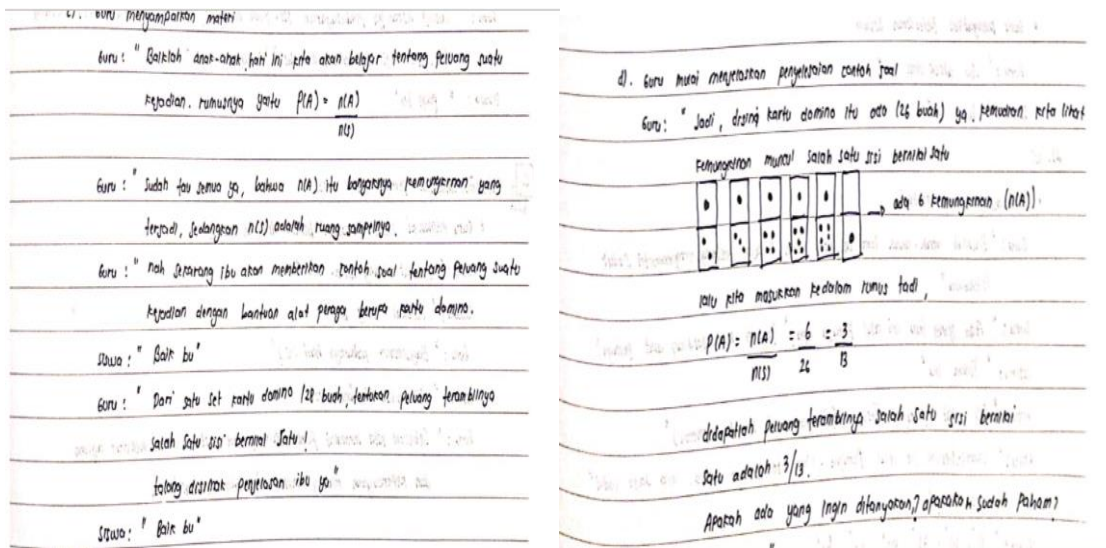 c). Guru menyampaikan materi
Guru : " Baiklah anak-anak hari ini kita akan belajar tentang Peluang suatu
kejadian. rumusnya yaitu P(A) = n(A)
n(s)
Guru : " Sudah tau semua ya, bahwa n(A) itu banyaknya kemungkinan yang
terjadi, sedangkan n(s) adalah ruang sampelnya.
Guru : " nah sekarang ibu akan memberikan contoh soal tentang peluang suatu
kejadian dengan bantuan alat peraga, berupa kartu domino.
Siswa : " Baik bu"
Guru : " Dari satu set kartu domino (28 buah, tentukan peluang terambilnya
salah satu sisi bernilai satu!
tolong disimak penjelasan ibu ya"
Siswa : " Baik bu"
d). Guru mulai menjelaskan penyelesaian contoh soal
Guru : " Jadi, disini kartu domino itu ada (26 buah) ya, kemudian kita lihat
kemungkinan muncul salah satu sisi bernilai satu
→ ada 6 kemungkinan (n(A)).
lalu kita masukkan kedalam rumus tadi,
P(A) = n(A) = 6 = 3
n(s) 26 13
didapatlah peluang terambilnya salah satu sisi bernilai
satu adalah 3/13.
Apakah ada yang ingin ditanyakan,? apakah sudah paham?